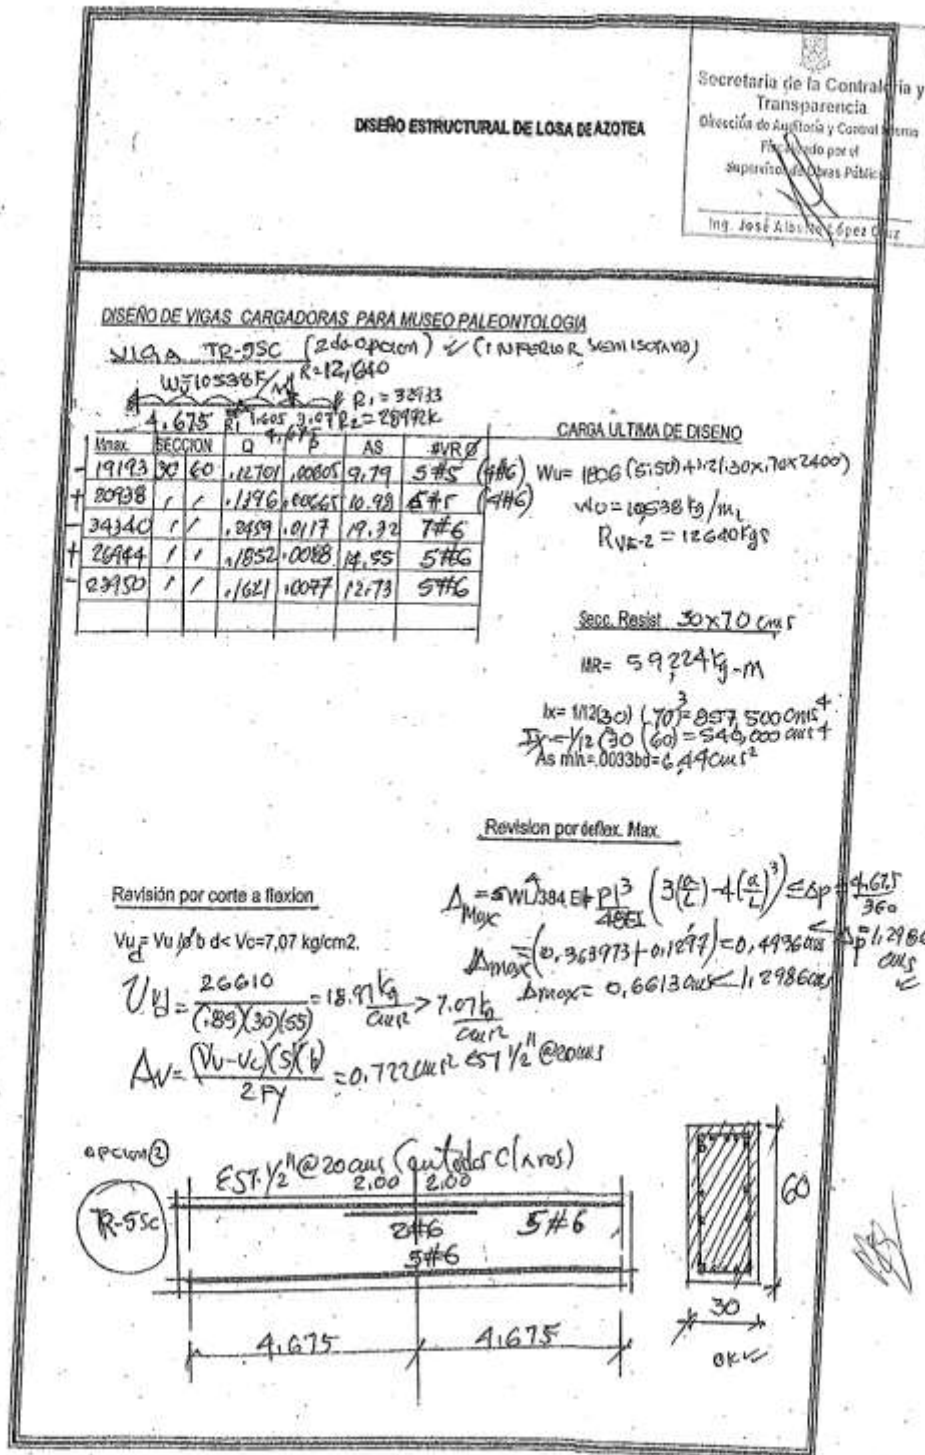 Secretaria de la Contraloría y
Transparencia
Dirección de Auditoría y Control Interno
Fiscalizado por el
Supervisor de Obras Públicas
Ing. José Alberto López Cruz
DISEÑO ESTRUCTURAL DE LOSA DE AZOTEA
DISEÑO DE VIGAS CARGADORAS PARA MUSEO PALEONTOLOGIA
VIGA TR-5SC (2da opcion) (INFERIOR SEMISOTANO)
W=10538K/M R=12,640
R1=32933
4.675 R1 1.605 3.07 R2=28992K
4.675
Mmax. SECCION Q P AS #VR Ø
- 19193 30 60 .12701 .00605 9.79 5#5 (4#6)
+ 20938 / / .1396 .00665 10.98 6#5 (4#6)
- 34340 / / .2459 .0117 19.32 7#6
+ 26944 / / .1852 .0088 14.55 5#6
- 23950 / / .1621 .0077 12.73 5#6
CARGA ULTIMA DE DISENO
Wu= 1806 (5.50)+1.2(.30x.70x2400)
Wu=10,538 kg/mL
RVE-2 = 12640 Kgs
Secc. Resist 30x70 cms
MR= 59,224 kg-M
Ix= 1/12(30) (70)3=857,500 cms4
Ix=1/12 (30 (60) =540,000 cms4
As min=.0033bd=6.44 cms2
Revision por deflex. Max.
Δ Max =5WL4/384 EI+ Pl3/48EI (3(a/L) -4(a/L)3) ≤ Δp = 4.675/360
Δmax=(0.363973+0.1297)=0.4936 cms < Δp=1.2986 cms
Δmax= 0.6613 cms < 1.2986 cms
Revisión por corte a flexion
Vu= Vu /Ø b d< Vc=7,07 kg/cm2.
d
Ud= 26610/(.85)(30)(55) =18.97 kg/cm2 > 7.07 kg/cm2
Av= (Vu-Vc)(S)(b)/2Fy =0.722 cm2 EST 1/2" @20cms
opcion 2
TR-5Sc
EST. 1/2" @ 20 cms (en todos Claros)
2.00 2.00
2#6 5#6
5#6
4.675 4.675
60
30
OK